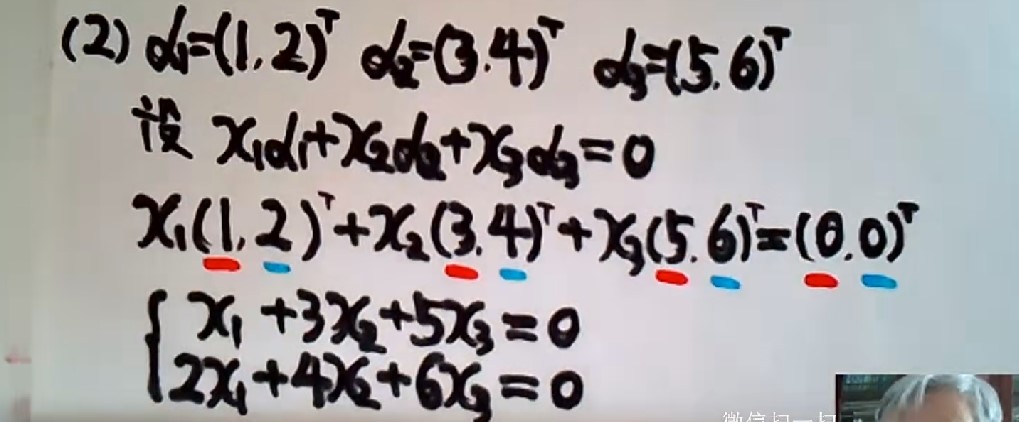 (2) α₁=(1,2)ᵀ α₂=(3,4)ᵀ α₃=(5,6)ᵀ
设 x₁α₁+x₂α₂+x₃α₃=0
x₁(1,2)ᵀ+x₂(3,4)ᵀ+x₃(5,6)ᵀ=(0,0)ᵀ
{ x₁+3x₂+5x₃=0
2x₁+4x₂+6x₃=0
微信扫一扫